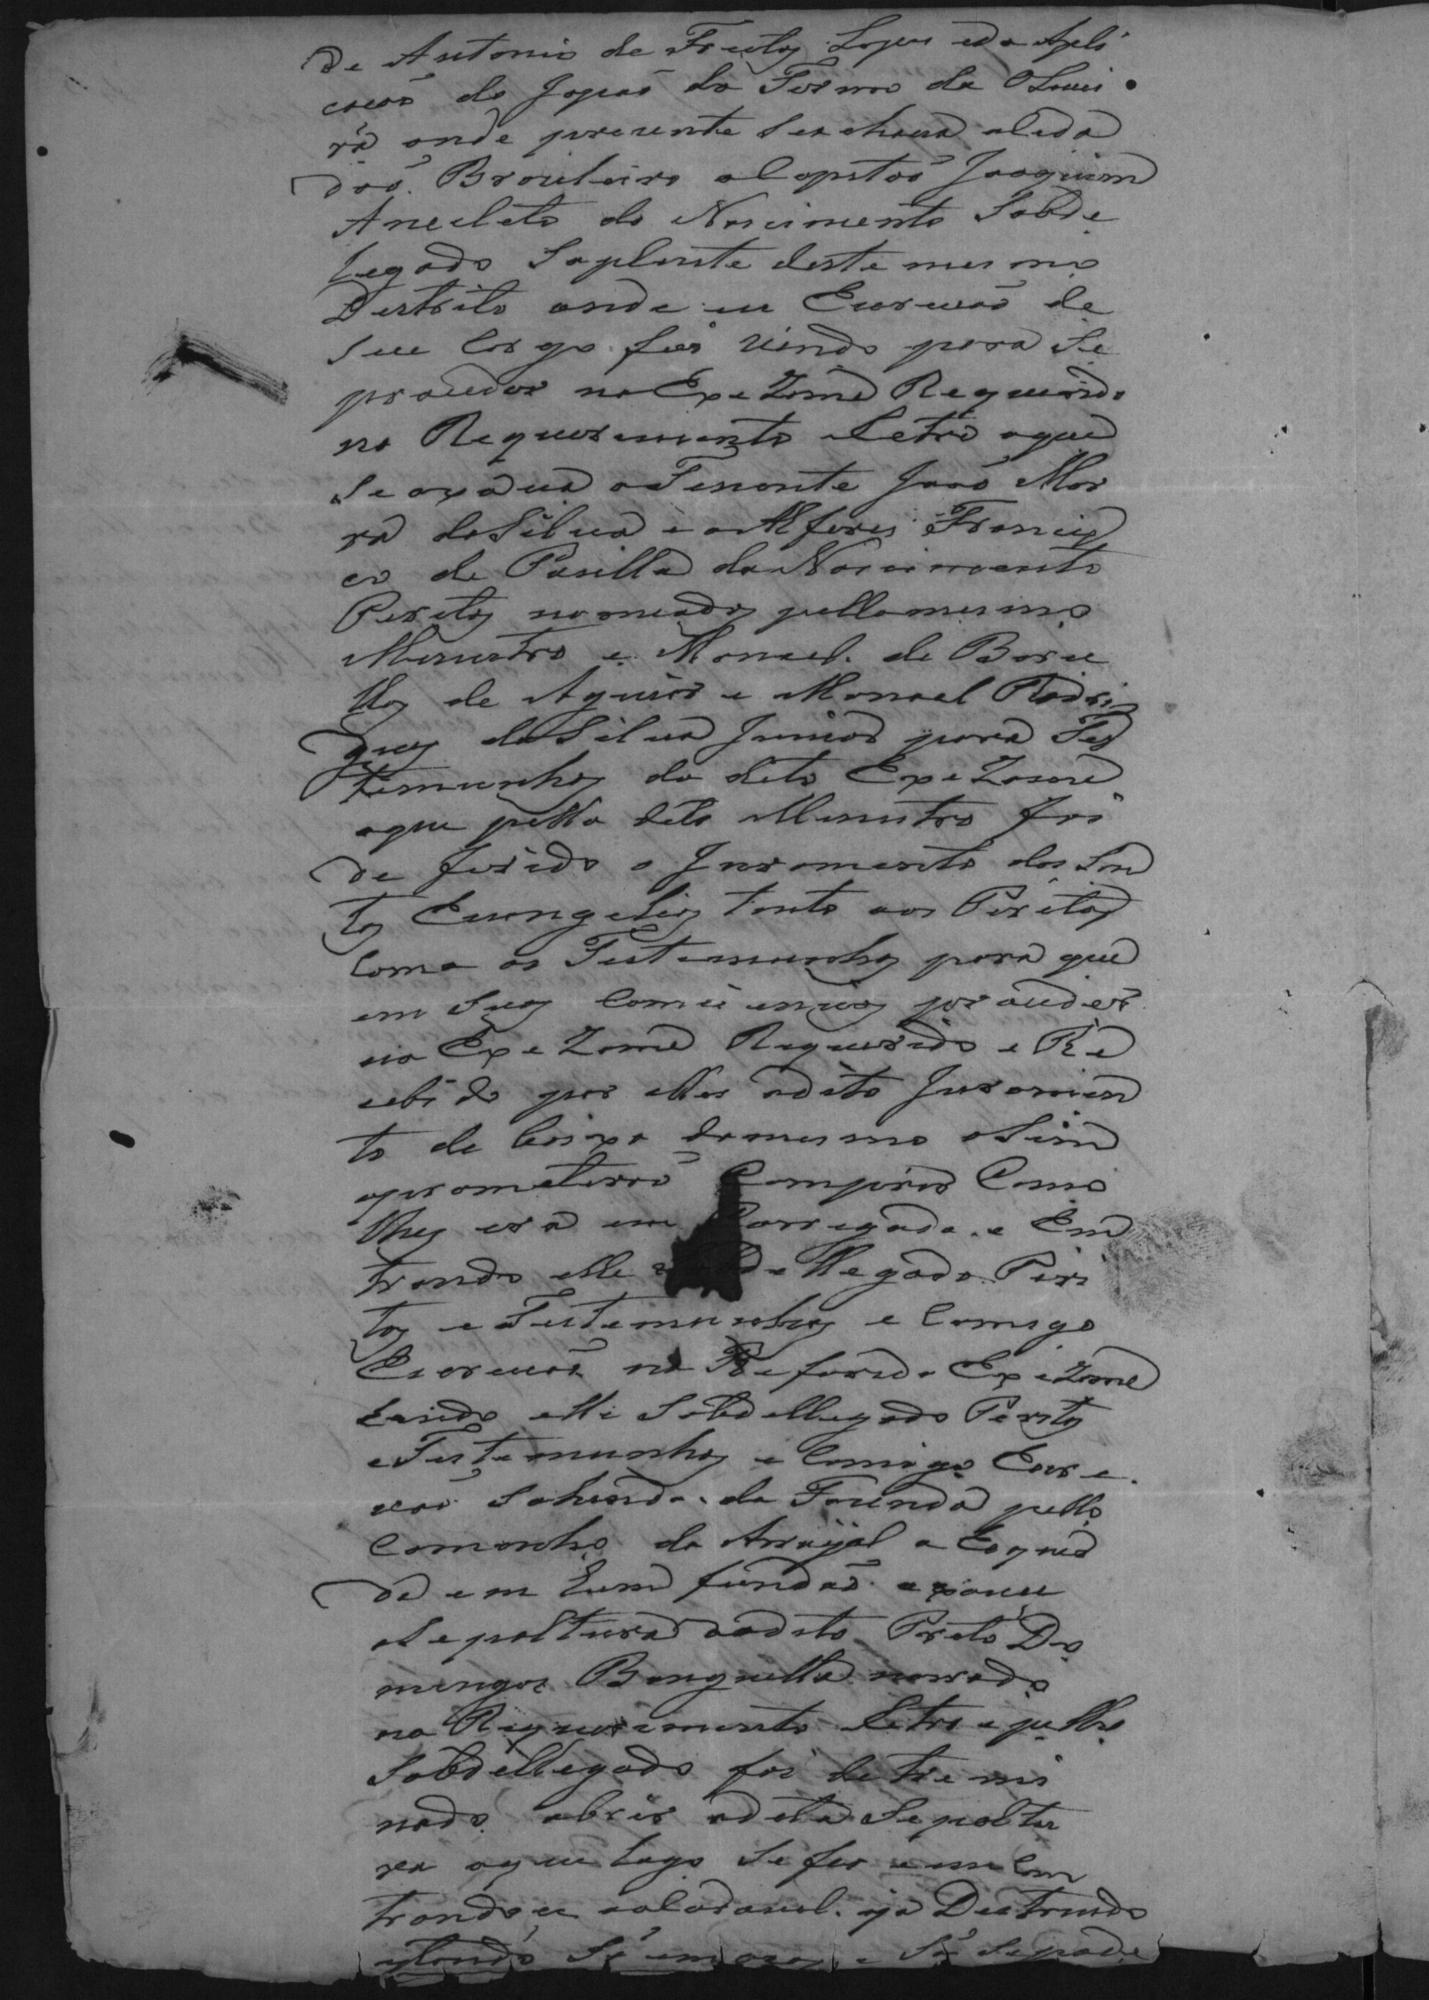 de Antonio de Freitas Lopes eda Apli
cacaõ do Japaõ do Termo da Olivei
ra onde prezente seachava ocida
daõ Brazileiro o Capitaõ Joaquim
Anecleto do Nascimento Sobde
legado Saplente deste mesmo
Destrito onde eu Escrivaõ de
seu Cargo fui vindo para se
proceder no Exezame Requerido
no Requerimento Retro aque
se axava o Tenente Joaõ Mor
ra da Silva e o Alferes Francis
co de Paulla do Nascimento
Peritos nomeados pello mesmo
Menistro e Manoel de Barce
llos de Aguiar e Manoel Rodri
gues da Silva Junior para Tes
temunhas do dito Exezame
aque pello dito Menistro foi
de ferido o Juramento dos San
tos Evangelios tanto aos Peritos
Como as Testemunhas para que
em suas Conciencias proceder
no Exezame Requerido e Re
cebido por elles odito Juramen
to de baixo domesmo o Sim
oprometeraõ Comprir Como
lhes era em Carregado e Em
trando elle Sobdellegado Peri
tos e Testemunhas e Comigo
Escrivaõ no Referido Exezame
sendo elle Sobdellegado Peritos
e Testemunhas e Comigo Escre
vaõ Sahindo da Fazenda pello
Camonho do Arrayal a Esquer
da em hum fundaõ axouce
a Sepoltura do dito Preto Do
mingos Benguella narrado
no Requerimento Retro e pello
Sobdellegado foi detremi
nado abrir adita Sepoltu
ra oque logo se fes e em Con
trandoce ocadavel ja Destruido
estando Só em ossos e